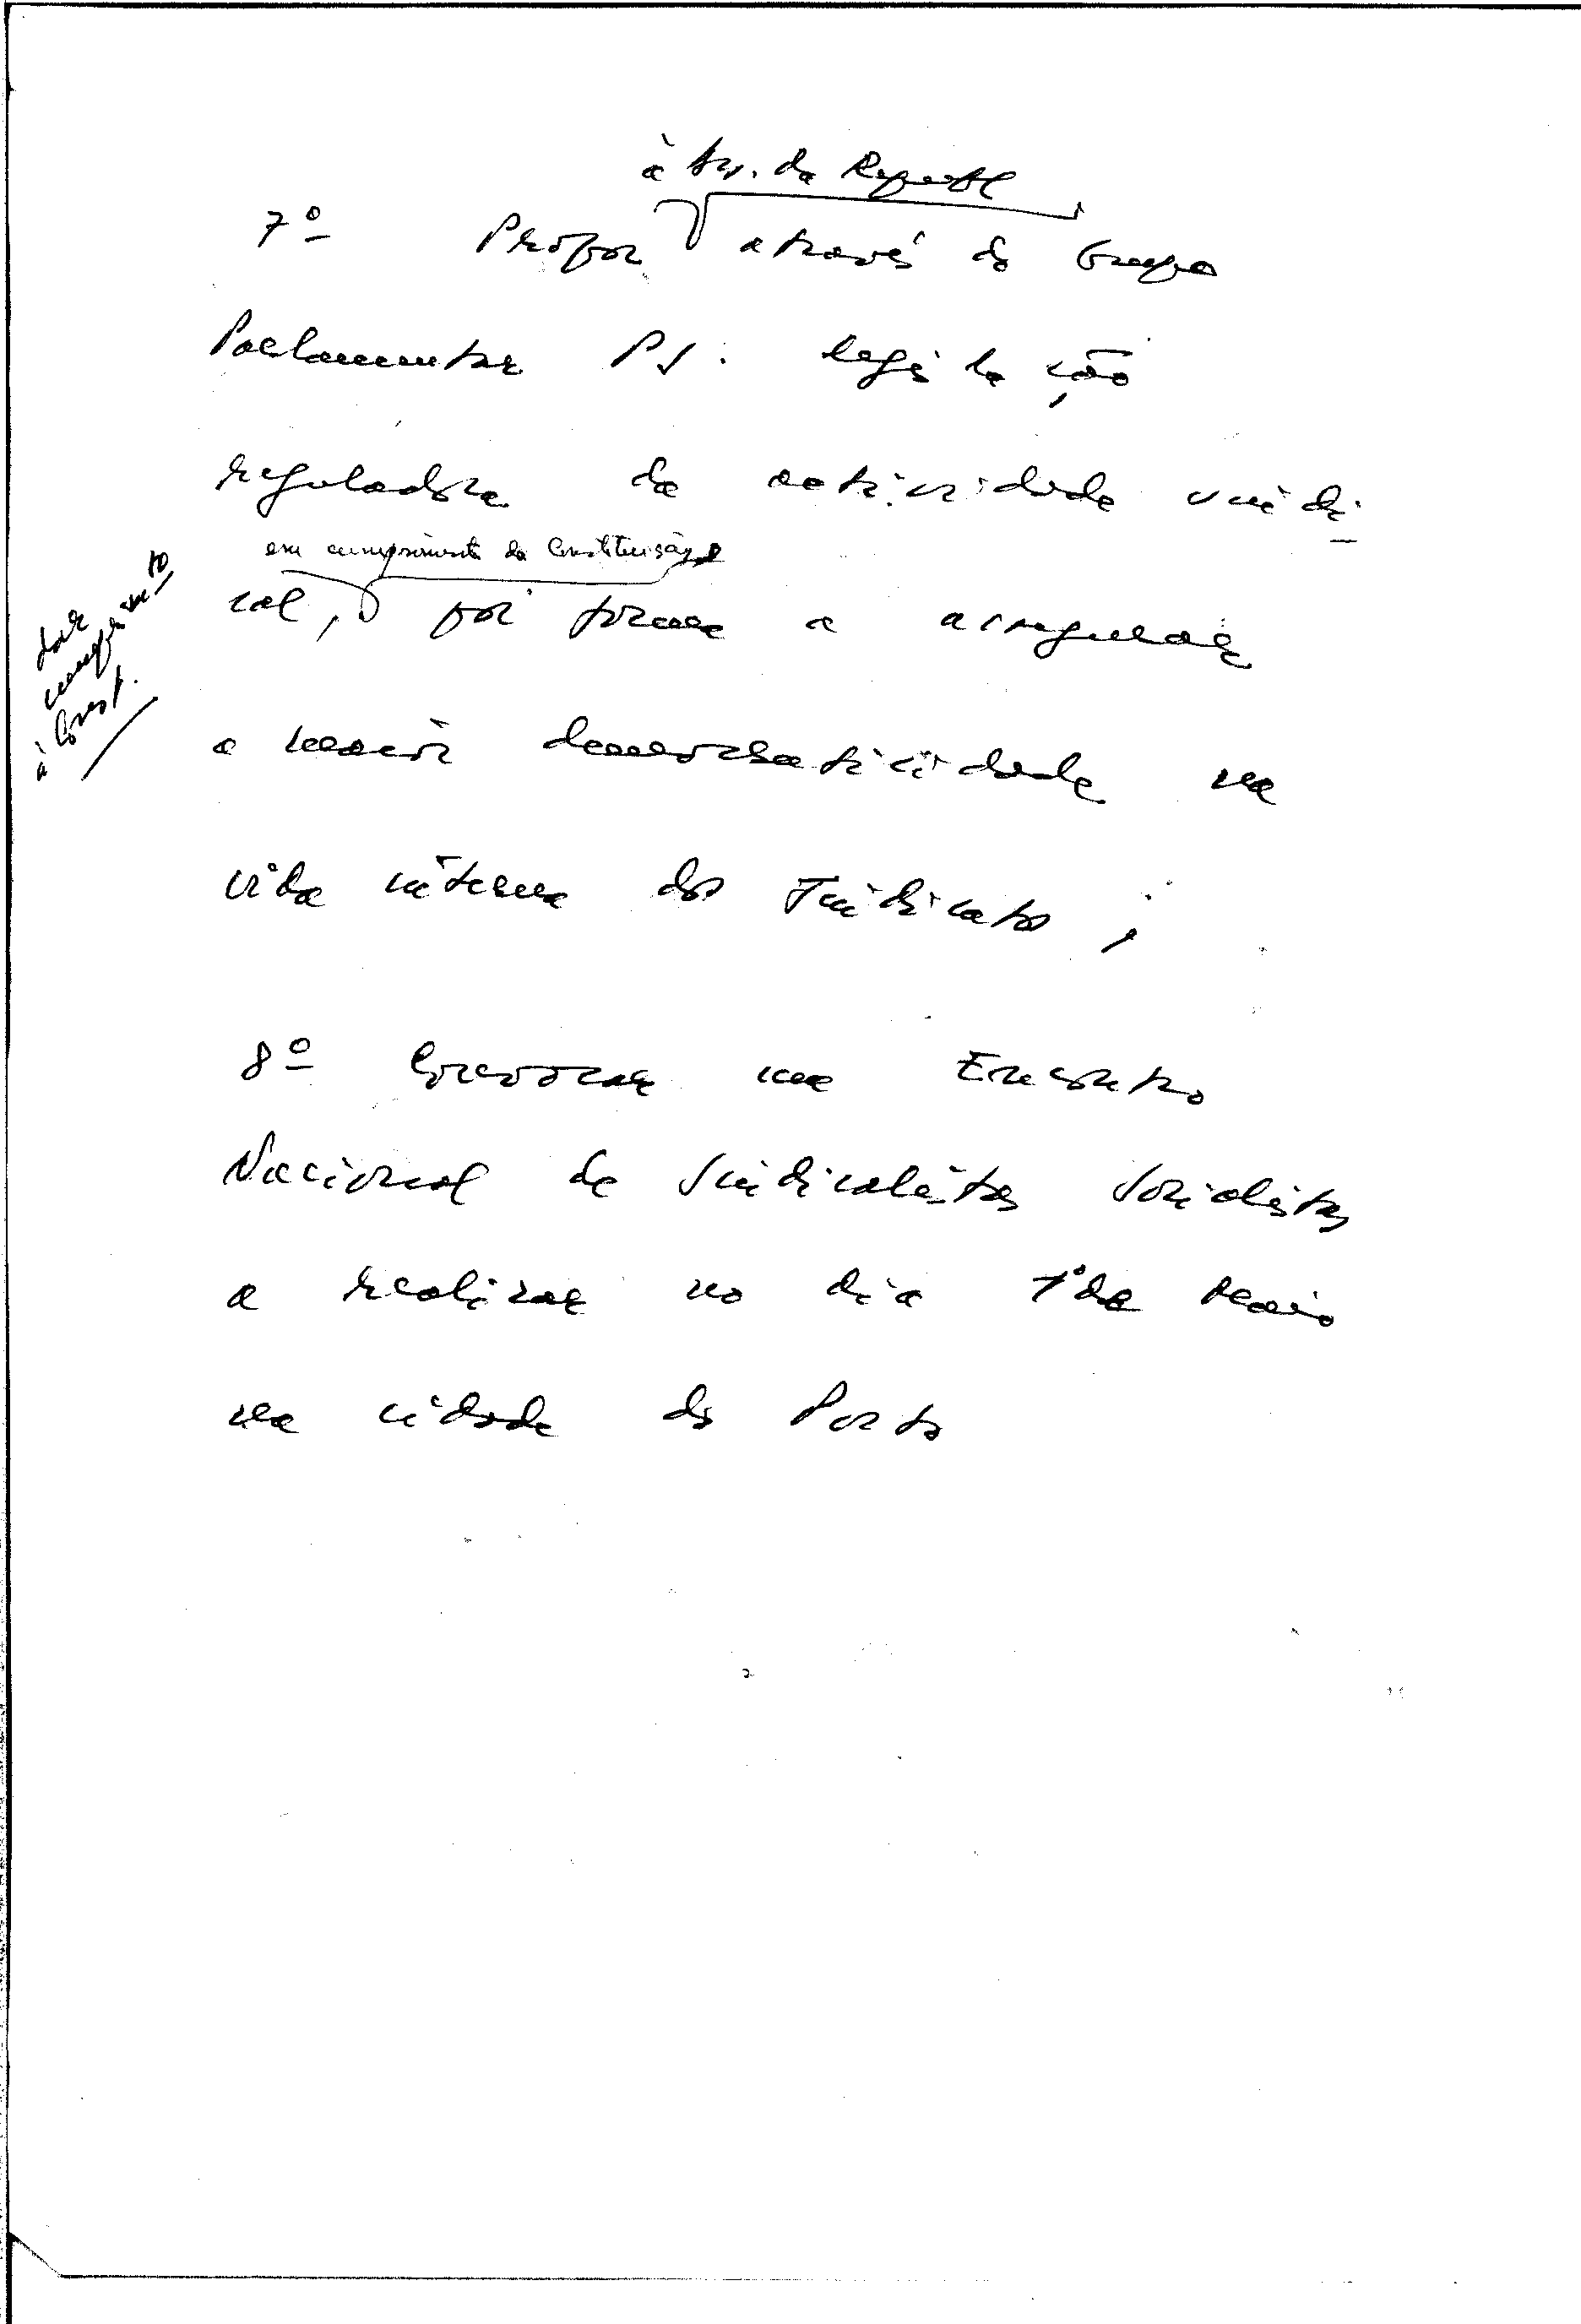 à Ass. da Republ
7º Propor através do Grupo
Parlamentar PS. legislação
reguladora da actividade sindi
em cumprimento da Constituição
cal, por forma a assegurar
dar
cumprimento
à Const.
a maior democraticidade na
vida interna dos Sindicatos;
8º Convocar um Encontro
Nacional de Sindicalistas Socialistas
a realizar no dia 1º de Maio
na cidade do Porto